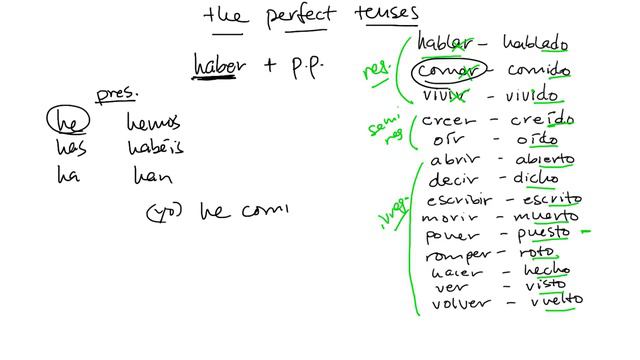 the perfect tenses
haber + p.p.
pres.
he hemos
has habéis
ha han
(yo) he comi
res.
hablar - hablado
comer - comido
vivir - vivido
semi
res
creer - creído
oír - oído
irreg.
abrir - abierto
decir - dicho
escribir - escrito
morir - muerto
poner - puesto -
romper - roto
hacer - hecho
ver - visto
volver - vuelto